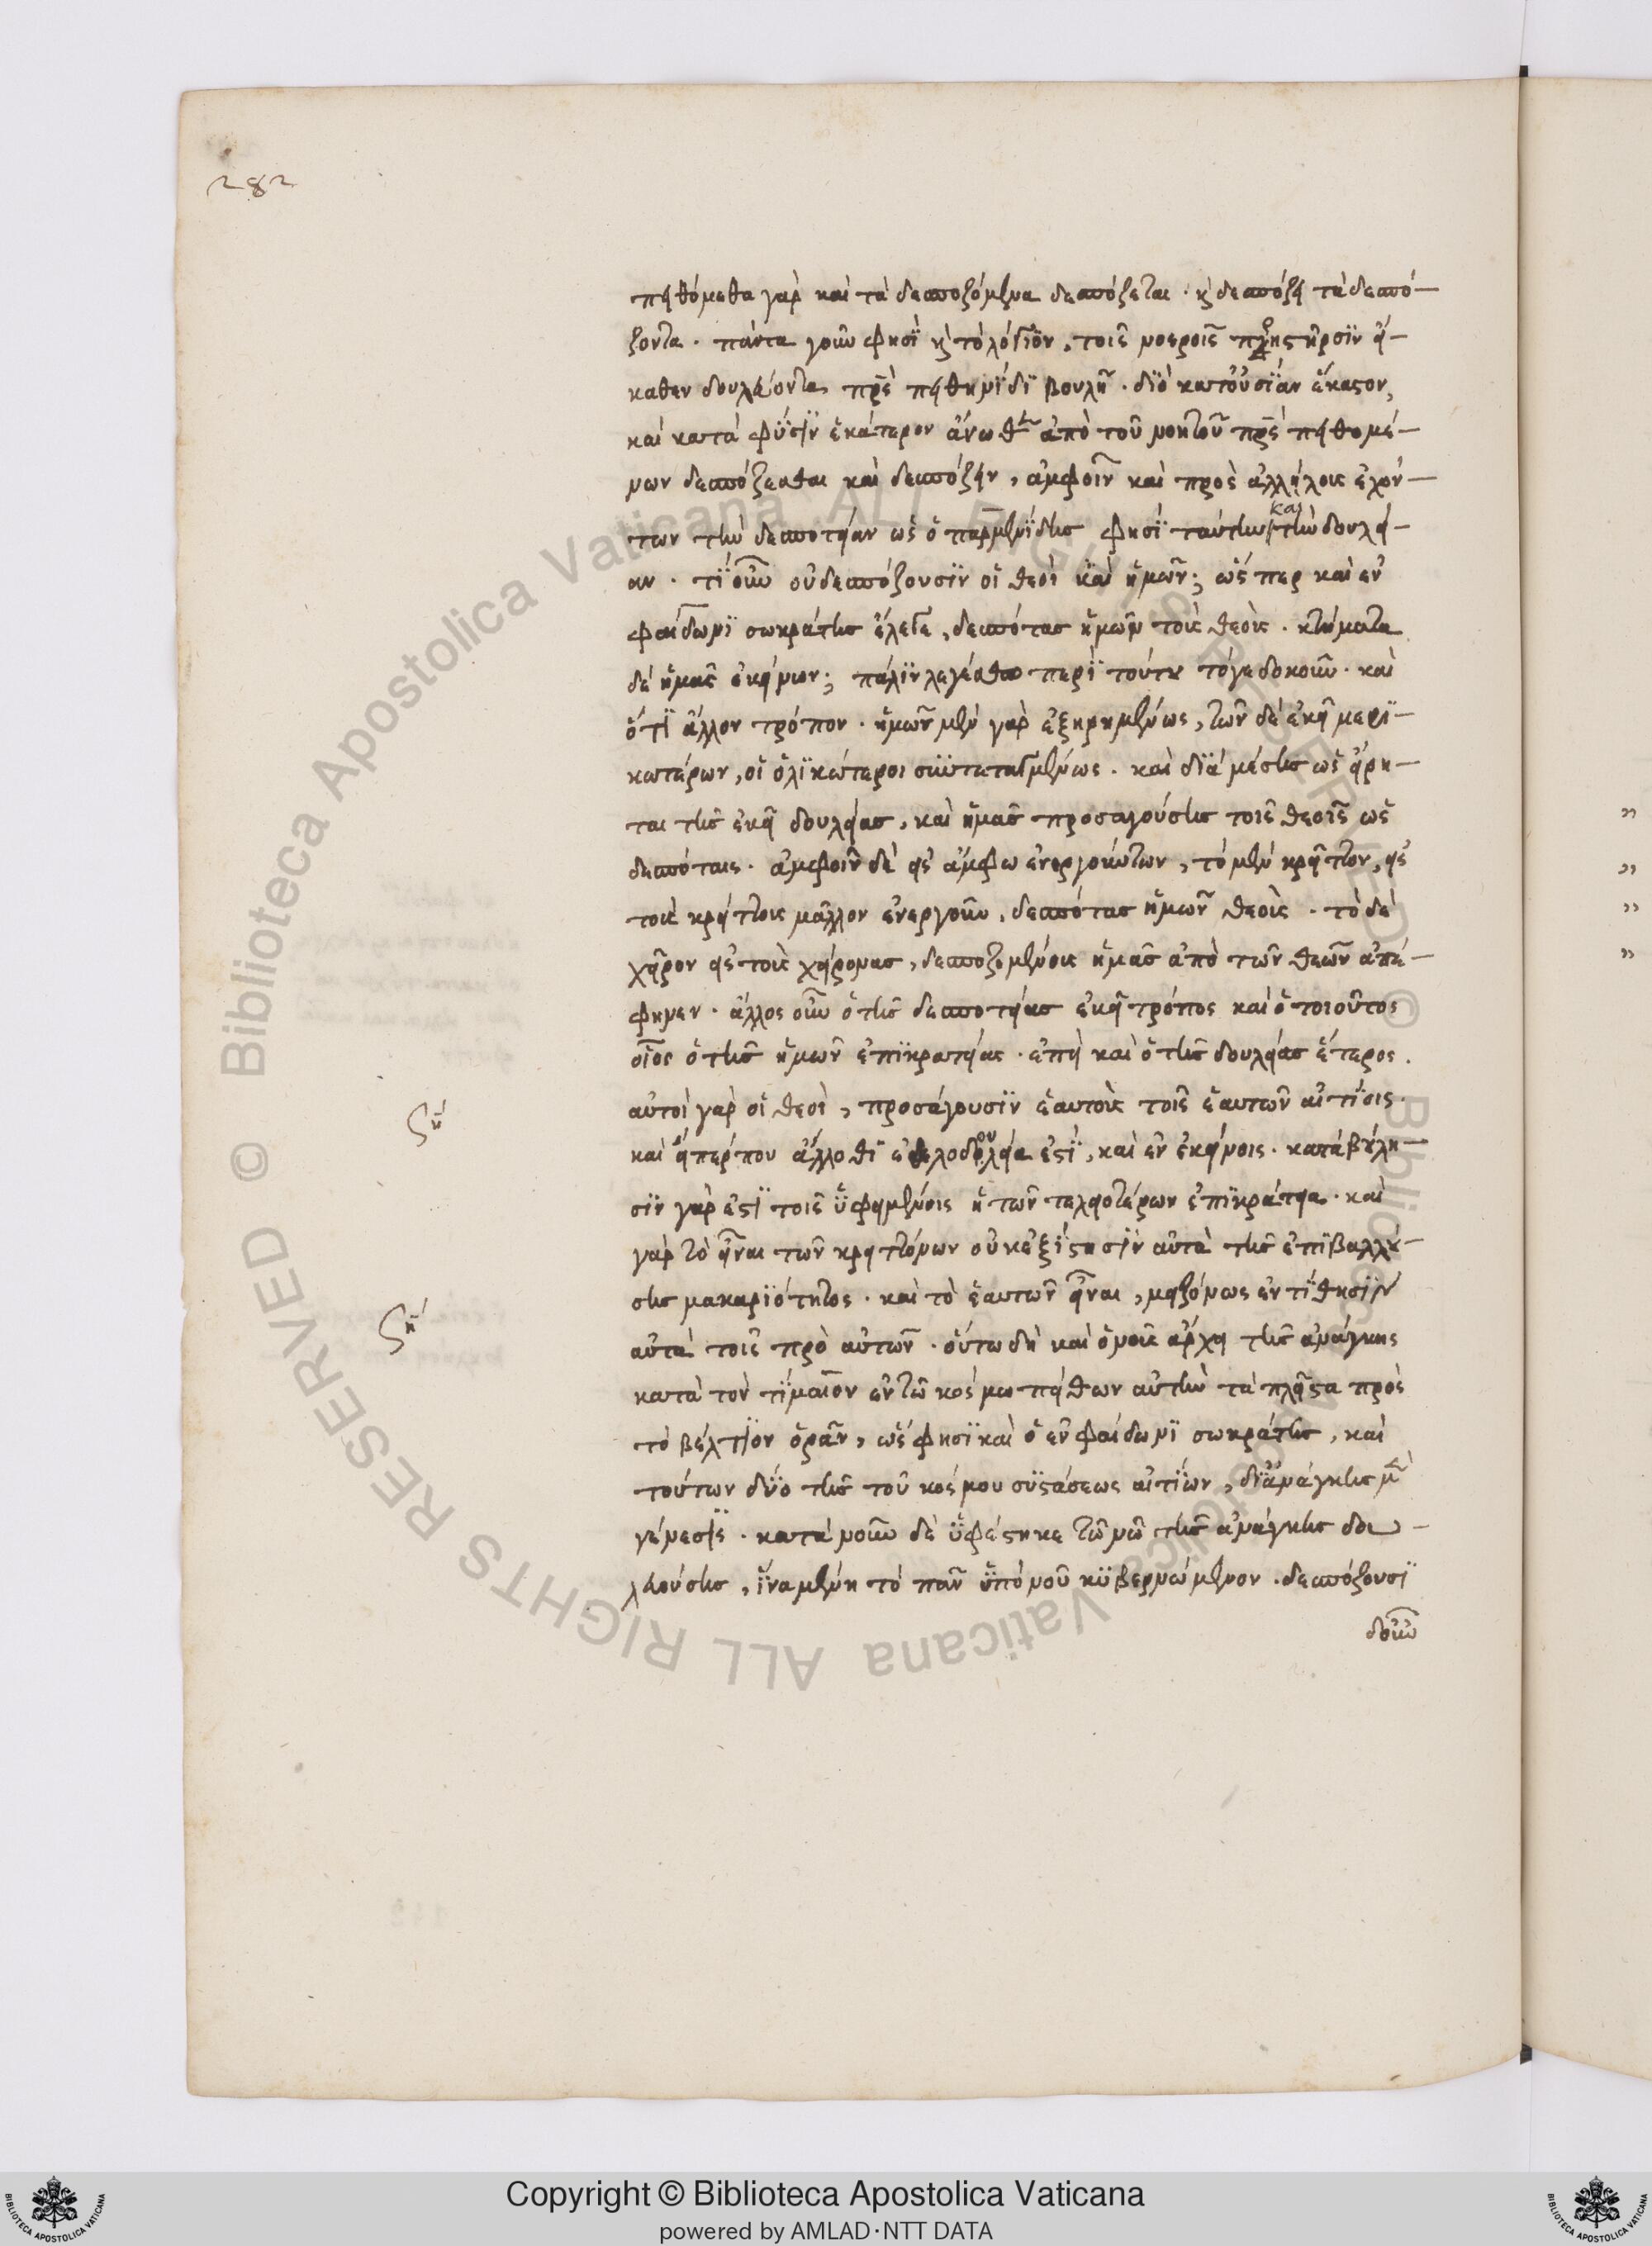 282
πειθόμεθα γὰρ καὶ τὰ δεσποζόμενα δεσπόζεται · κ̀ δεσπόζει τὰ δεσπό-
ζοντα · πάντα γοῦν φησὶ κ̀ τὸ λόγϊον, τοῖς νοεροῖς
καθεν δουλεύοντα πρς̀ πειθηνΐδϊ βουλῇ · δϊὸ κατ' οὐσΐαν ἕκαστον,
καὶ κατὰ φύσϊν ἑκάτερον ἄνωθεν ἀπὸ τοῦ νοητοῦ πρς̀ πειθομέ-
νων δεσπόζεσθαι καὶ δεσπόζειν, ἀμφοῖν καὶ πρὸς ἀλλήλους ἐχόν-
των τὴν δεσποτείαν ὡς ὁ παρμενΐδης φησὶ ταύτην καὶ τὴν δουλεί-
αν · τΐ οὖν οὐ δεσπόζουσϊν οἱ θεοὶ καὶ ἡμῶν; ὥς περ καὶ ἐν
φαίδωνϊ σωκράτης ἔλεγε, δεσπότας ἡμῶν τοὺς θεοὺς · κτήματα
δὲ ἡμᾶς ἐκείνων; πάλϊν λεγέσθω περὶ τούτου τό γε δοκοῦν · καὶ
ὅτϊ ἄλλον τρόπον · ἡμῶν μὲν γὰρ ἐξῃρημένως, τῶν δὲ ἐκεῖ μερϊ-
κωτέρων, οἱ ὁλϊκώτεροι συντεταγμένως · καὶ δϊὰ μέσης ὡς εἴρη-
ται τῆς ἐκεῖ δουλείας, καὶ ἡμᾶς προσαγούσης τοῖς θεοῖς ὡς
δεσπόταις · ἀμφοῖν δὲ εἰς ἄμφω ἐνεργούντων, τὸ μὲν κρεῖττον, εἰς
τοὺς κρείττους μᾶλλον ἐνεργοῦν, δεσπότας ἡμῶν θεοὺς · τὸ δὲ
χεῖρον εἰς τοὺς χείρονας, δεσποζομένους ἡμᾶς ἀπὸ τῶν θεῶν ἀπέ-
φηνεν · ἄλλος οὖν ὁ τῆς δεσποτείας ἐκεῖ τρόπος καὶ ὁ τοιοῦτος
οἷος ὁ τῆς ἡμῶν ἐπϊκρατείας · ἐπεὶ καὶ ὁ τῆς δουλείας ἕτερος.
αὐτοὶ γὰρ οἱ θεοὶ, προσάγουσϊν ἑαυτοὺς τοῖς ἑαυτῶν αἰτΐοις ·
καὶ εἴπερ που ἄλλοθϊ ἐθελοδουλεία ἐστΐ, καὶ ἐν ἐκείνοις · κατὰ βούλη-
σϊν γάρ ἐστϊ τοῖς ὑφειμένοις ἡ τῶν τελειοτέρων ἐπϊκράτεια · καὶ
γὰρ τὸ εἶναι τῶν κρειττόνων οὐκ ἐξΐστησϊν αὐτὰ τῆς ἐπϊβαλλού-
σης μακαρϊότητος · καὶ τὸ ἑαυτῶν εἶναι, μειζόνως ἐντΐθησϊν
αὐτὰ τοῖς πρὸ αὐτῶν · οὕτω δὴ καὶ ὁ νοῦς ἄρχει τῆς ἀνάγκης
κατὰ τὸν τΐμαιον ἐν τῷ κόσμω πείθων αὐτὴν τὰ πλεῖστα πρὸς
τὸ βέλτϊον ὁρᾶν, ὥς φησϊ καὶ ὁ ἐν φαίδωνϊ σωκράτης, καὶ
τούτων δύο τῆς τοῦ κόσμου συστάσεως αἰτΐων, δϊ' ἀνάγκης
γένεσϊς · κατὰ νοῦν δὲ ὑφέστηκε τῷ νῷ τῆς ἀνάγκης δου-
λευούσης, ἵνα μένη τὸ πᾶν ὑπὸ νοῦ κυβερνώμενον · δεσπόζουσϊ
δ' οὖν